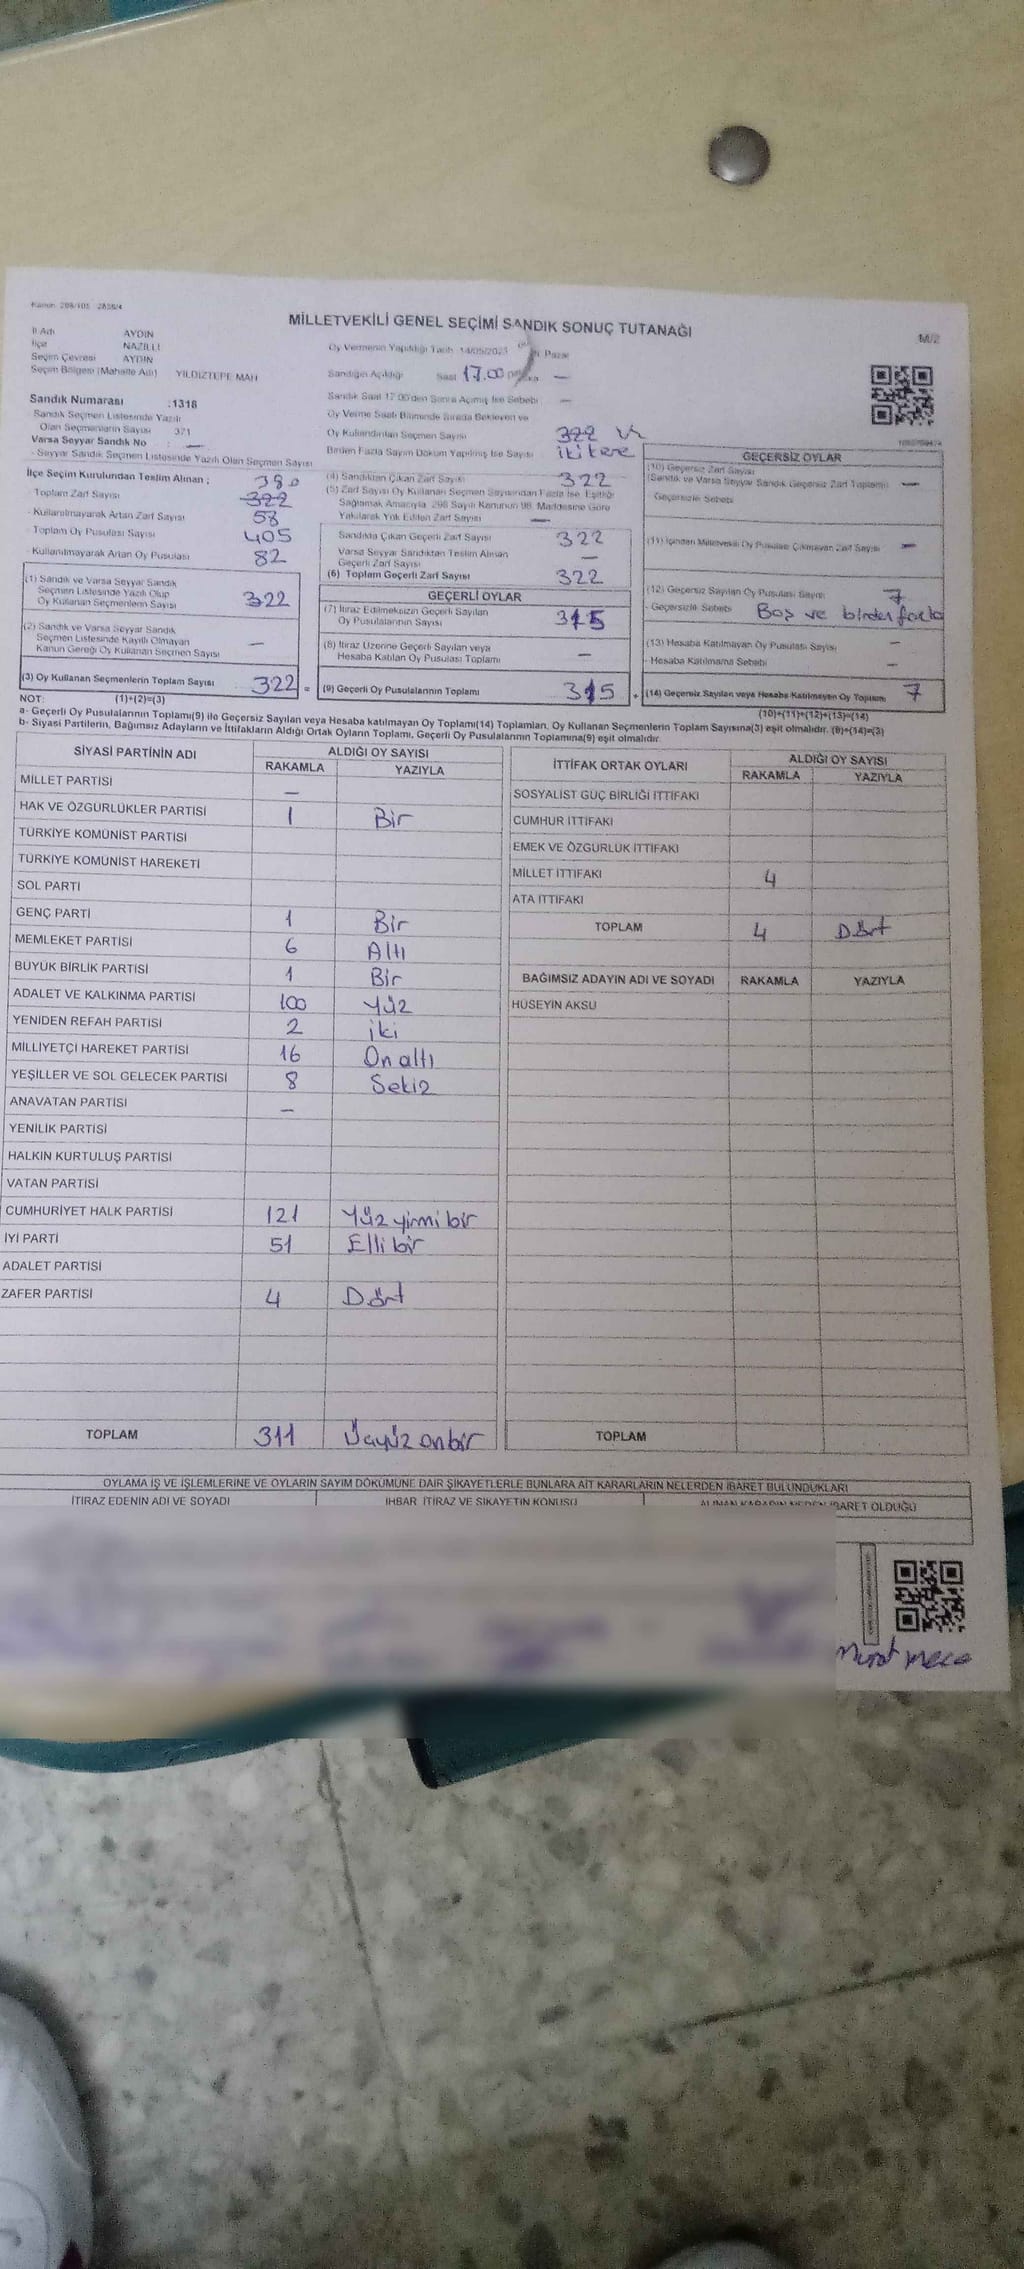 Kanun 298/105 2839/4
MİLLETVEKİLİ GENEL SEÇİMİ SANDIK SONUÇ TUTANAĞI
M/2
İl Adı AYDIN
İlçe NAZİLLİ
Seçim Çevresi AYDIN
Seçim Bölgesi (Mahalle Adı) YILDIZTEPE MAH
Oy Vermenin Yapıldığı Tarih 14/05/2023 Pazar
Sandığın Açıldığı Saat 17.00 —
Sandık Numarası :1318
Sandık Seçmen Listesinde Yazılı
Olan Seçmenlerin Sayısı 371
Varsa Seyyar Sandık No : —
- Seyyar Sandık Seçmen Listesinde Yazılı Olan Seçmen Sayısı
İlçe Seçim Kurulundan Teslim Alınan ; 380
- Toplam Zarf Sayısı 322
- Kullanılmayarak Artan Zarf Sayısı 58
- Toplam Oy Pusulası Sayısı 405
- Kullanılmayarak Artan Oy Pusulası 82
(1) Sandık ve Varsa Seyyar Sandık
Seçmen Listesinde Yazılı Olup
Oy Kullanan Seçmenlerin Sayısı 322
(2) Sandık ve Varsa Seyyar Sandık
Seçmen Listesinde Kayıtlı Olmayan
Kanun Gereği Oy Kullanan Seçmen Sayısı —
(3) Oy Kullanan Seçmenlerin Toplam Sayısı 322 =
Sandık Saat 17.00'den Sonra Açılmış İse Sebebi : —
Oy Verme Saati Bitiminde Sırada Bekleyen ve
Oy Kullandırılan Seçmen Sayısı 322
Birden Fazla Sayım Döküm Yapılmış İse Sayısı iki kere
(4) Sandıktan Çıkan Zarf Sayısı 322
(5) Zarf Sayısı Oy Kullanan Seçmen Sayısından Fazla İse, Eşitliği
Sağlamak Amacıyla, 298 Sayılı Kanunun 98. Maddesine Göre
Yakılarak Yok Edilen Zarf Sayısı —
Sandıkta Çıkan Geçerli Zarf Sayısı 322
Varsa Seyyar Sandıktan Teslim Alınan
Geçerli Zarf Sayısı —
(6) Toplam Geçerli Zarf Sayısı 322
GEÇERLİ OYLAR
(7) İtiraz Edilmeksizin Geçerli Sayılan
Oy Pusulalarının Sayısı 315
(8) İtiraz Üzerine Geçerli Sayılan veya
Hesaba Katılan Oy Pusulası Toplamı —
(9) Geçerli Oy Pusulalarının Toplamı 315 +
GEÇERSİZ OYLAR
(10) Geçersiz Zarf Sayısı
(Sandık ve Varsa Seyyar Sandık Geçersiz Zarf Toplamı) —
- Geçersizlik Sebebi
(11) İçinden Milletvekili Oy Pusulası Çıkmayan Zarf Sayısı —
(12) Geçersiz Sayılan Oy Pusulası Sayısı 7
- Geçersizlik Sebebi Boş ve birden fazla
(13) Hesaba Katılmayan Oy Pusulası Sayısı —
- Hesaba Katılmama Sebebi —
(14) Geçersiz Sayılan veya Hesaba Katılmayan Oy Toplamı 7
NOT: (1)+(2)=(3)
(10)+(11)+(12)+(13)=(14)
a- Geçerli Oy Pusulalarının Toplamı(9) ile Geçersiz Sayılan veya Hesaba katılmayan Oy Toplamı(14) Toplamları, Oy Kullanan Seçmenlerin Toplam Sayısına(3) eşit olmalıdır. (9)+(14)=(3)
b- Siyasi Partilerin, Bağımsız Adayların ve İttifakların Aldığı Ortak Oyların Toplamı, Geçerli Oy Pusulalarının Toplamına(9) eşit olmalıdır.
SİYASİ PARTİNİN ADI ALDIĞI OY SAYISI
RAKAMLA YAZIYLA
MİLLET PARTİSİ —
HAK VE ÖZGÜRLÜKLER PARTİSİ 1 Bir
TÜRKİYE KOMÜNİST PARTİSİ
TÜRKİYE KOMÜNİST HAREKETİ
SOL PARTİ
GENÇ PARTİ 1 Bir
MEMLEKET PARTİSİ 6 Altı
BÜYÜK BİRLİK PARTİSİ 1 Bir
ADALET VE KALKINMA PARTİSİ 100 Yüz
YENİDEN REFAH PARTİSİ 2 iki
MİLLİYETÇİ HAREKET PARTİSİ 16 On altı
YEŞİLLER VE SOL GELECEK PARTİSİ 8 Sekiz
ANAVATAN PARTİSİ —
YENİLİK PARTİSİ
HALKIN KURTULUŞ PARTİSİ
VATAN PARTİSİ
CUMHURİYET HALK PARTİSİ 121 Yüz yirmi bir
İYİ PARTİ 51 Elli bir
ADALET PARTİSİ
ZAFER PARTİSİ 4 Dört
TOPLAM 311 Üçyüz onbir
İTTİFAK ORTAK OYLARI ALDIĞI OY SAYISI
RAKAMLA YAZIYLA
SOSYALİST GÜÇ BİRLİĞİ İTTİFAKI
CUMHUR İTTİFAKI
EMEK VE ÖZGÜRLÜK İTTİFAKI
MİLLET İTTİFAKI 4
ATA İTTİFAKI
TOPLAM 4 Dört
BAĞIMSIZ ADAYIN ADI VE SOYADI RAKAMLA YAZIYLA
HÜSEYİN AKSU
TOPLAM
OYLAMA İŞ VE İŞLEMLERİNE VE OYLARIN SAYIM DÖKÜMÜNE DAİR ŞİKAYETLERLE BUNLARA AİT KARARLARIN NELERDEN İBARET BULUNDUKLARI
İTİRAZ EDENİN ADI VE SOYADI İHBAR İTİRAZ VE ŞİKAYETİN KONUSU ALINAN KARARIN NEDEN İBARET OLDUĞU
Murat Mece